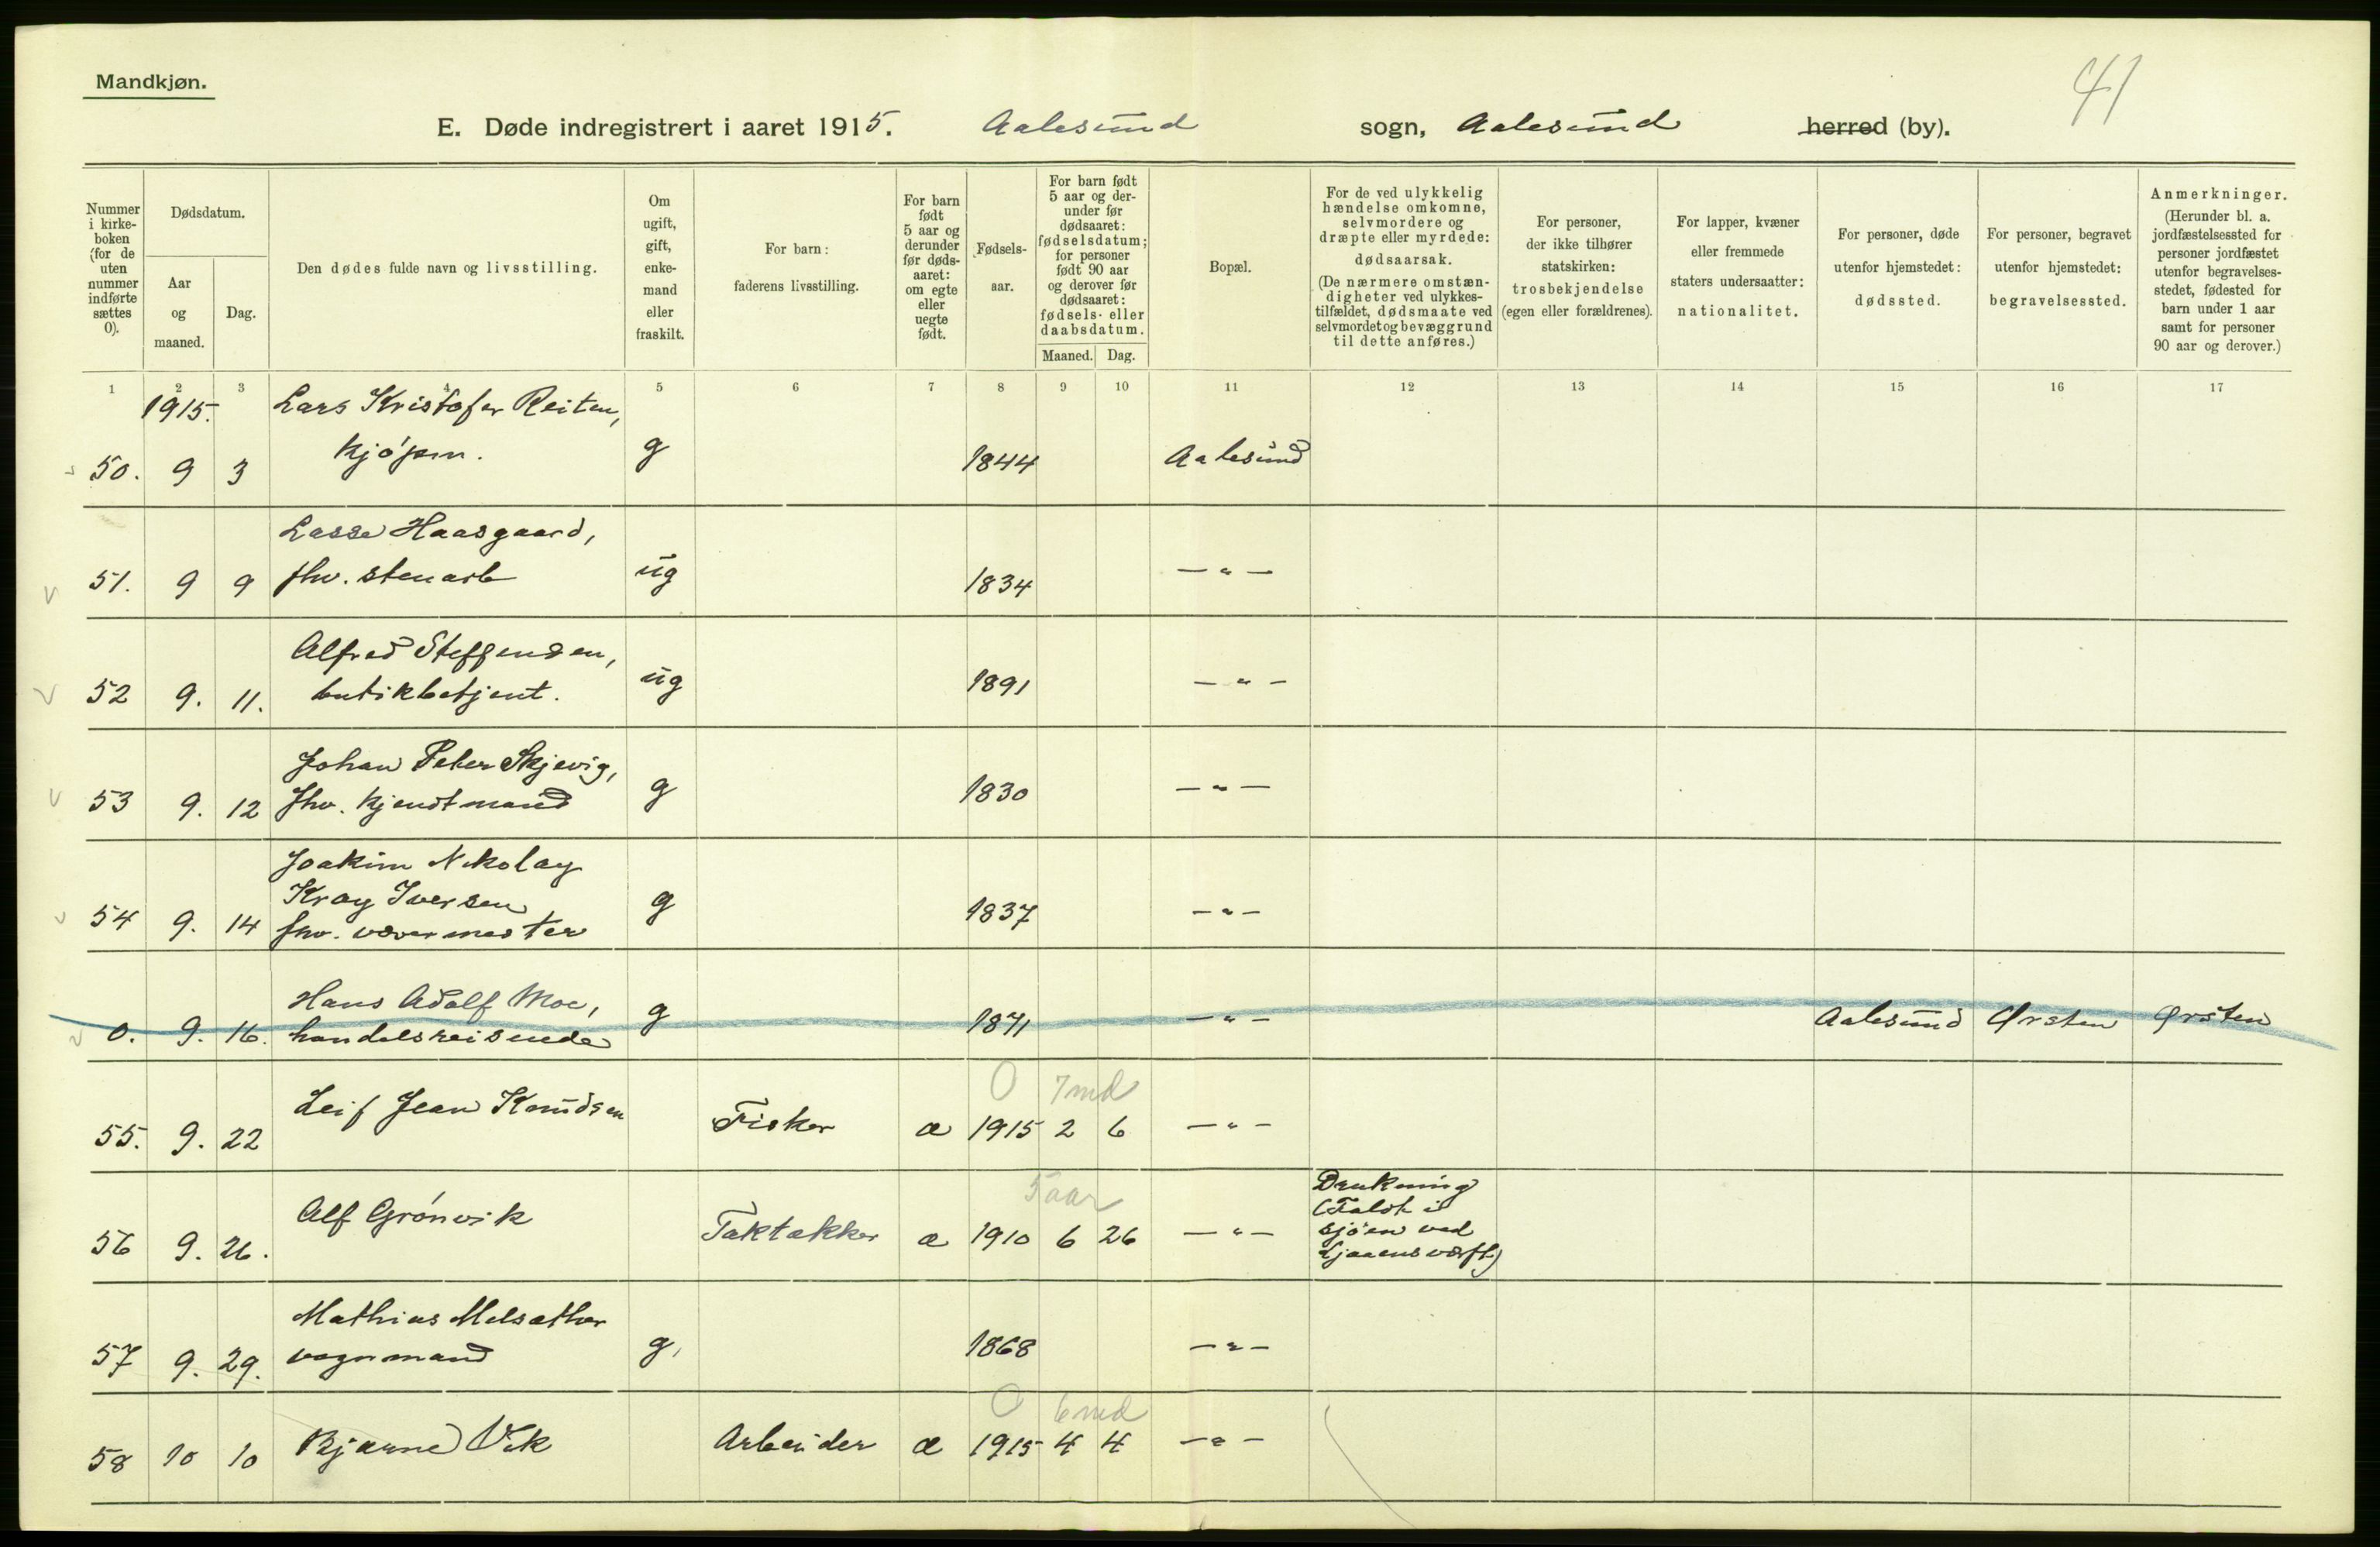 Mandkjøn.
41
E. Døde indregistrert i aaret 1915. Aalesund sogn, Aalesund herred (by).
Nummer i kirkeboken (for de uten nummer indførte sættes 0).
Dødsdatum.
Aar og maaned.
Dag.
Den dødes fulde navn og livsstilling.
Om ugift, gift, enkemand eller fraskilt.
For barn: faderens livsstilling.
For barn født 5 aar og derunder før dødsaaret: om egte eller uegte født.
Fødselsaar.
For barn født 5 aar og derunder før dødsaaret: fødselsdatum; for personer født 90 aar og derover før dødsaaret: fødsels- eller daabsdatum.
Maaned. Dag.
Bopæl.
For de ved ulykkelig hændelse omkomne, selvmordere og dræpte eller myrdede: dødsaarsak.
(De nærmere omstændigheter ved ulykkestilfældet, dødsmaate ved selvmordet og bevæggrund til dette anføres.)
For personer, der ikke tilhører statskirken: trosbekjendelse (egen eller forældrenes).
For lapper, kvæner eller fremmede staters undersaatter: nationalitet.
For personer, døde utenfor hjemstedet: dødssted.
For personer, begravet utenfor hjemstedet: begravelsessted.
Anmerkninger.
(Herunder bl. a. jordfæstelsessted for personer jordfæstet utenfor begravelsesstedet, fødested for barn under 1 aar samt for personer 90 aar og derover.)
1 2 3 4 5 6 7 8 9 10 11 12 13 14 15 16 17
1915. Lars Kristofer Reiten,
50. 9 3 kjøpm. g 1844 Aalesund
Lasse Haasgaard,
51. 9 9 fhv. stenarb ug 1834 — " —
Alfred Steffensen,
52 9. 11. butikbetjent. ug 1891 — " —
Johan Peter Skjevig,
53 9. 12 fhv. kjendtmand g 1830 — " —
Joakim Nikolay
Kray Iversen
54 9. 14 fhv. vævermester g 1837 — " —
Hans Adolf Moe,
0. 9. 16. handelsreisende g 1871 — " — Aalesund Ørsten Ørsten
0 7 md
Leif Jean Knudsen
55. 9. 22 Fisker æ 1915 2 6 — " —
5 aar
Alf Grønvik
56 9. 26. Taktækker æ 1910 6 26 — " —
Drukning
(Faldt i
sjøen ved
Mathias Melsæther
57 9. 29. vognmand g, 1868 — " —
0 6 md
58 10 10 Bjarne Vik Arbeider æ 1915 4 4 — " —